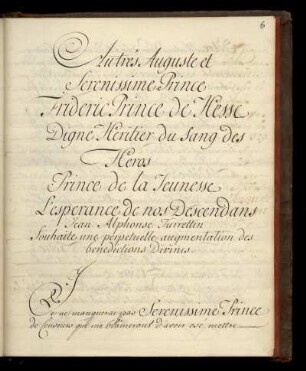 6
Au très Auguste et
Serenissime Prince
Frideric Prince de Hesse
Digne Heritier du Sang des
Heros
Prince de la Jeunesse
L'esperance de nos Descendans
Jean Alphonse Turrettin
Souhaite une perpetuelle augmentation des
benedictions Divines
Je ne manquerai pas Serenissime Prince
de censeurs qui me blameront d'avoir ose mettre